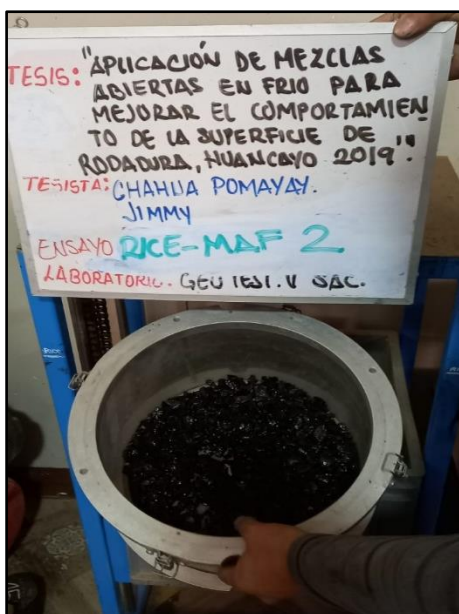 TESIS: "APLICACIÓN DE MEZCLAS
ABIERTAS EN FRIO PARA
MEJORAR EL COMPORTAMIEN
TO DE LA SUPERFICIE DE
RODADURA, HUANCAYO 2019".
TESISTA: CHAHUA POMAYAY.
JIMMY
ENSAYO RICE-MAF 2
LABORATORIO. GEO TEST. V SAC.